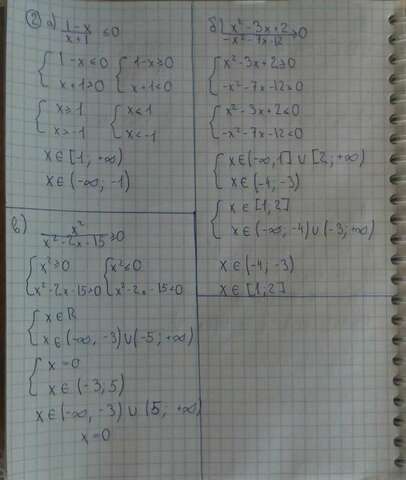 ② а) 1-x / x+1 ≤0
{ 1-x ≤ 0 { 1-x ≥ 0
{ x+1>0 { x+1<0
{ x ≥ 1 { x ≤ 1
{ x > -1 { x < -1
x ∈ [1; +∞)
x ∈ (-∞; -1)
б) x²-3x+2 / -x²-7x-12 ≥0
{ x²-3x+2≥0
{ -x²-7x-12>0
{ x²-3x+2≤0
{ -x²-7x-12<0
{ x∈(-∞,1] ∪ [2; +∞)
{ x∈(-4; -3)
{ x ∈ [1,2]
{ x ∈ (-∞, -4) ∪ (-3; +∞)
x ∈ (-4; -3)
x ∈ [1,2]
в) x² / x²-2x-15 ≥0
{ x²≥0 { x²≤0
{ x²-2x-15>0 { x²-2x-15<0
{ x ∈ R
{ x∈(-∞, -3)∪(-5; +∞)
{ x=0
{ x∈(-3;5)
x∈(-∞, -3) ∪ (5, +∞)
x=0